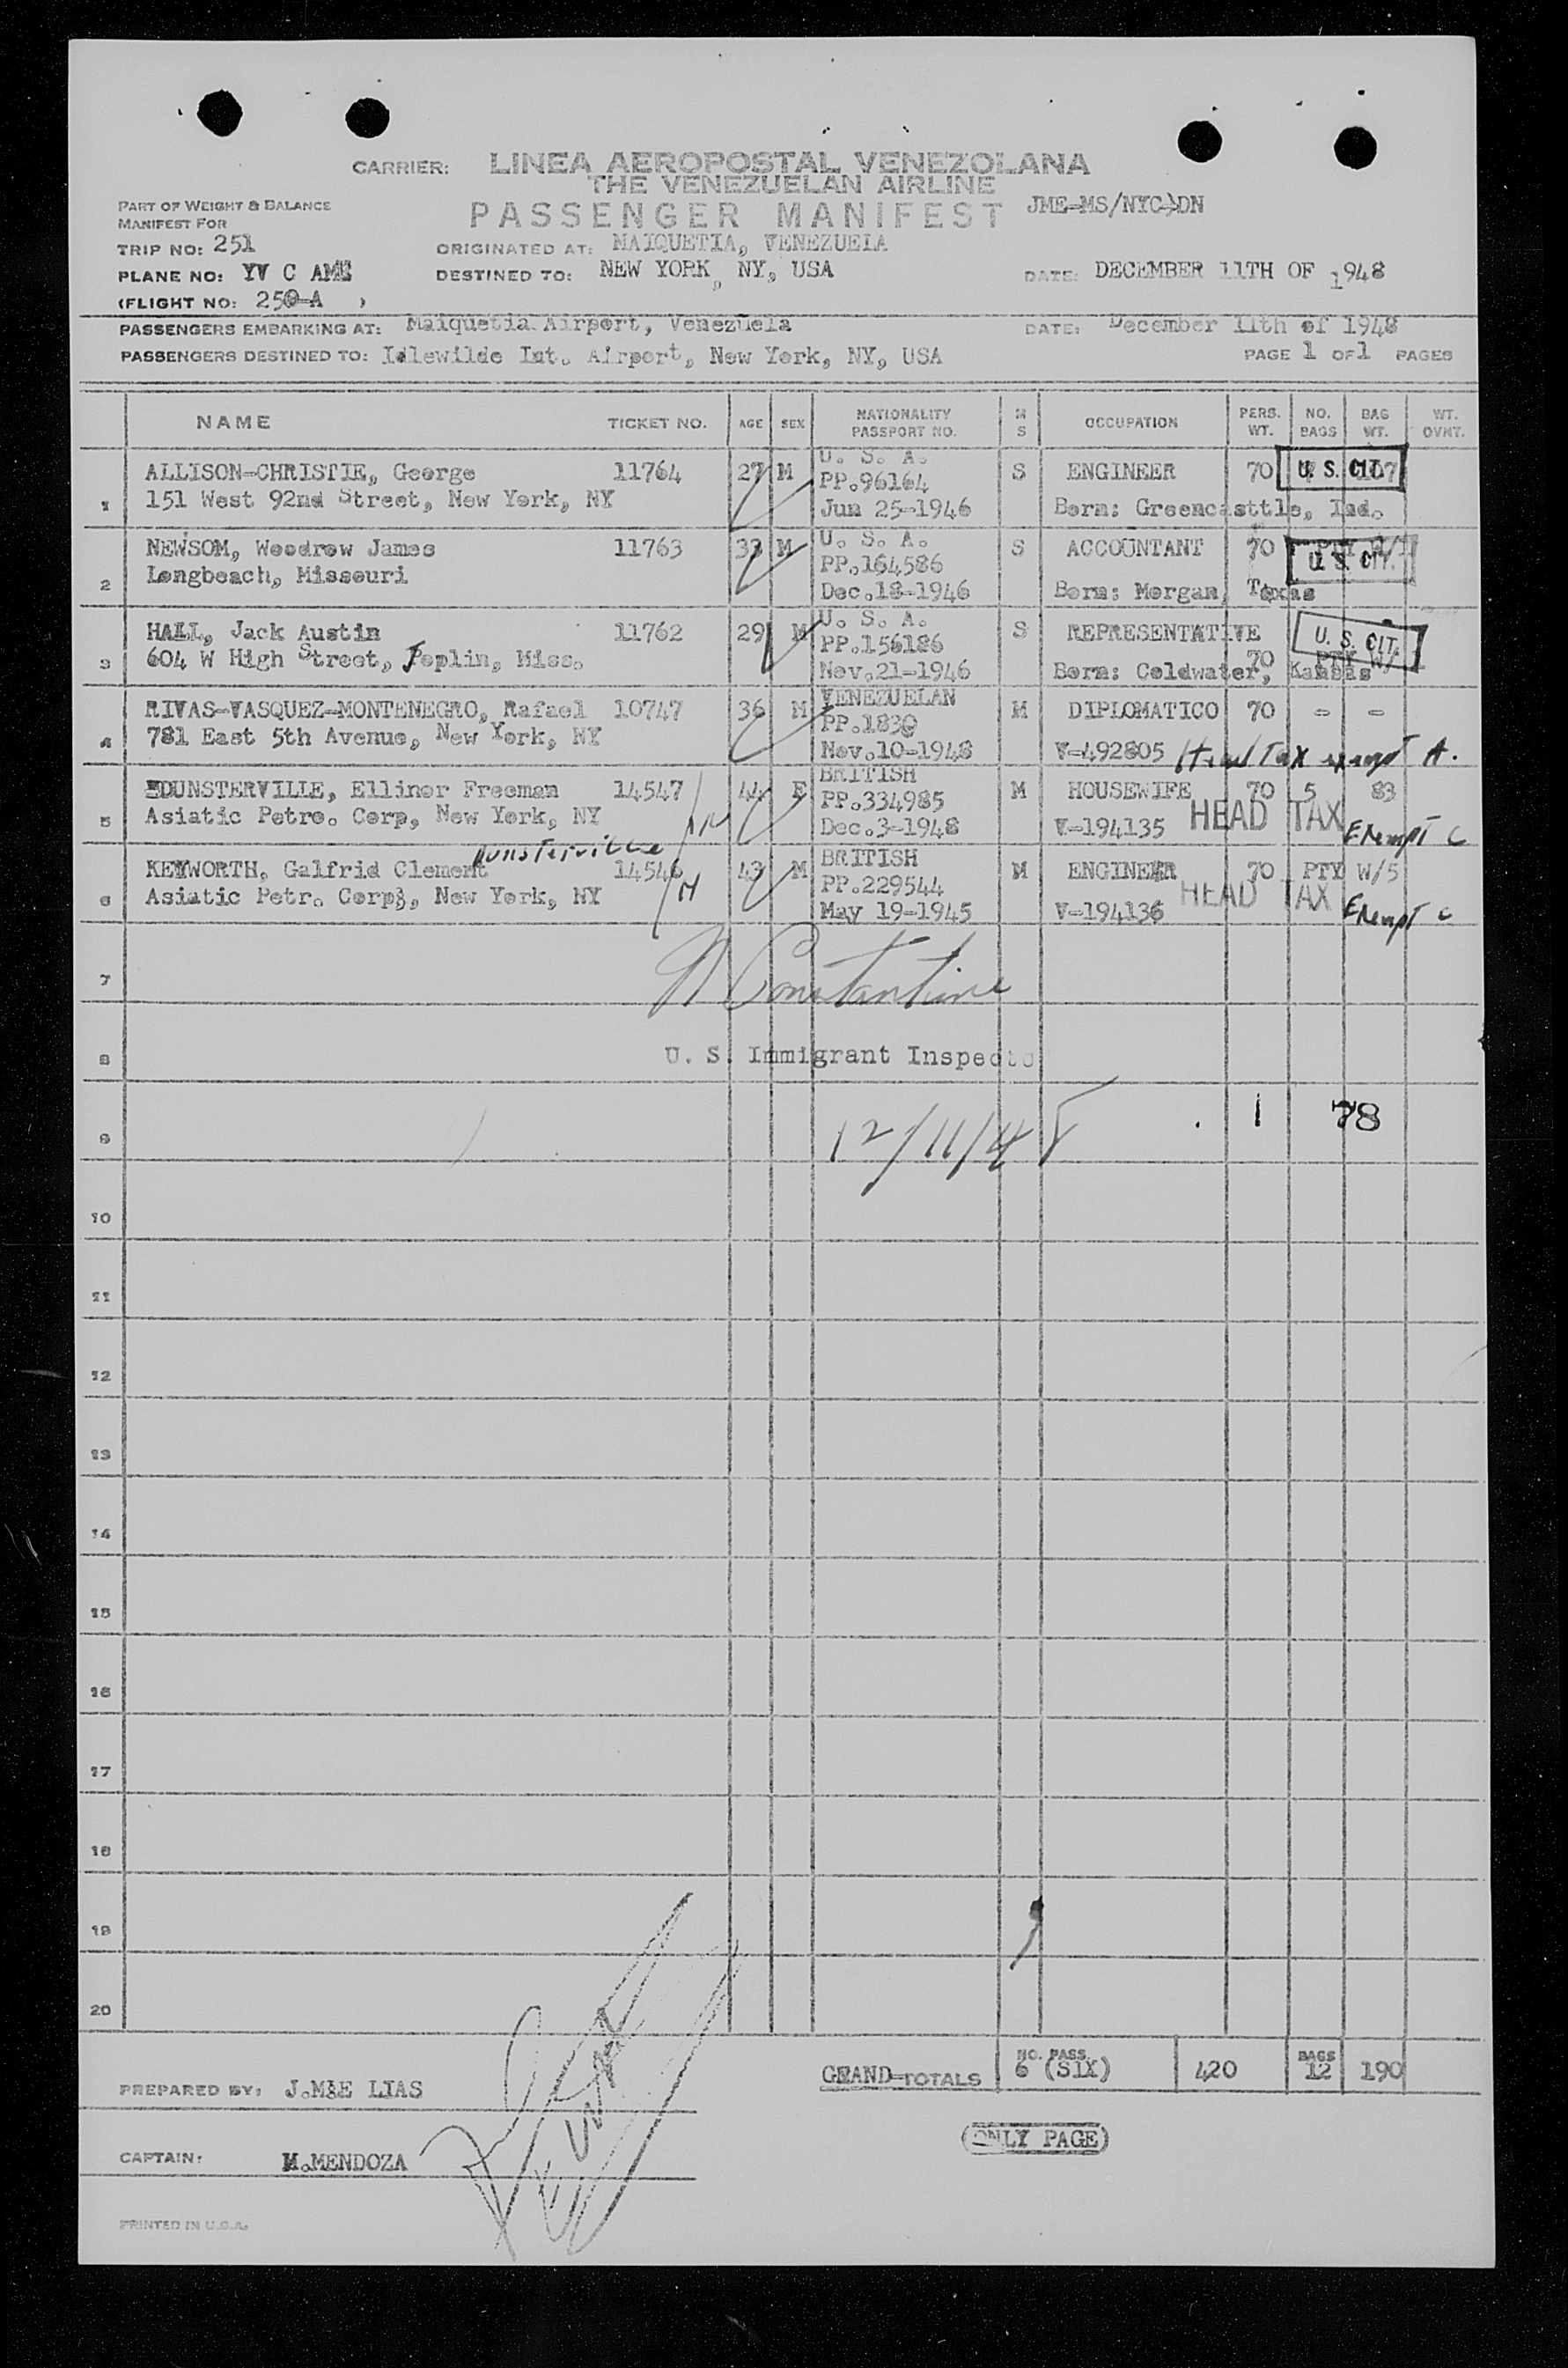 CARRIER: LINEA AEROPOSTAL VENEZOLANA
THE VENEZUELAN AIRLINE
PART OF WEIGHT & BALANCE
MANIFEST FOR
PASSENGER MANIFEST JME-MS/NYC-DN
TRIP NO: 251 ORIGINATED AT: MAIQUETIA, VENEZUELA
PLANE NO: YV C AME DESTINED TO: NEW YORK, NY, USA DATE: DECEMBER 11TH OF 1948
(FLIGHT NO: 250-A )
PASSENGERS EMBARKING AT: Maiquetia Airport, Venezuela DATE: December 11th of 1948
PASSENGERS DESTINED TO: Idlewilde Int. Airport, New York, NY, USA PAGE 1 OF 1 PAGES
NAME TICKET NO. AGE SEX NATIONALITY PASSPORT NO. M S OCCUPATION PERS. WT. NO. BAGS BAG WT. WT. OVNT.
U. S. A.
ALLISON-CHRISTIE, George 11764 27 M PP.96164 S ENGINEER 70 U. S. CIT. 107
1 151 West 92nd Street, New York, NY Jun 25-1946 Born: Greencasttle, Ind.
U. S. A.
NEWSOM, Woodrow James 11763 33 M PP.164586 S ACCOUNTANT 70 PTY W/ U. S. CIT.
2 Longbeach, Missouri Dec.18-1946 Born: Morgan, Texas
U. S. A.
HALL, Jack Austin 11762 29 M PP.156186 S REPRESENTATIVE U. S. CIT.
3 604 W High Street, Joplin, Miss. Nov.21-1946 70 PTY W/ Born: Coldwater, Kansas
VENEZUELAN
RIVAS-VASQUEZ-MONTENEGRO, Rafael 10747 36 M PP.1830 M DIPLOMATICO 70 - -
4 781 East 5th Avenue, New York, NY Nov.10-1948 V-492805 Head Tax exempt A.
BRITISH
DUNSTERVILLE, Ellinor Freeman 14547 44 F PP.334985 M HOUSEWIFE 70 5 83
5 Asiatic Petro. Corp, New York, NY Dec.3-1948 V-194135 HEAD TAX Exempt C
Dunsterville
BRITISH
KEYWORTH, Galfrid Clement 14546 43 M PP.229544 M ENGINEER 70 PTY W/5
6 Asiatic Petr. Corp, New York, NY M May 19-1945 V-194136 HEAD TAX Exempt C
7 N Constantine
8 U. S. Immigrant Inspecto
9 12/11/48 1 78
10
11
12
13
14
15
16
17
18
19
20
GRAND-TOTALS NO. PASS. 6 (SIX) 420 BAGS 12 190
PREPARED BY: J.M&E LIAS
(ONLY PAGE)
CAPTAIN: M.MENDOZA
PRINTED IN U.S.A.